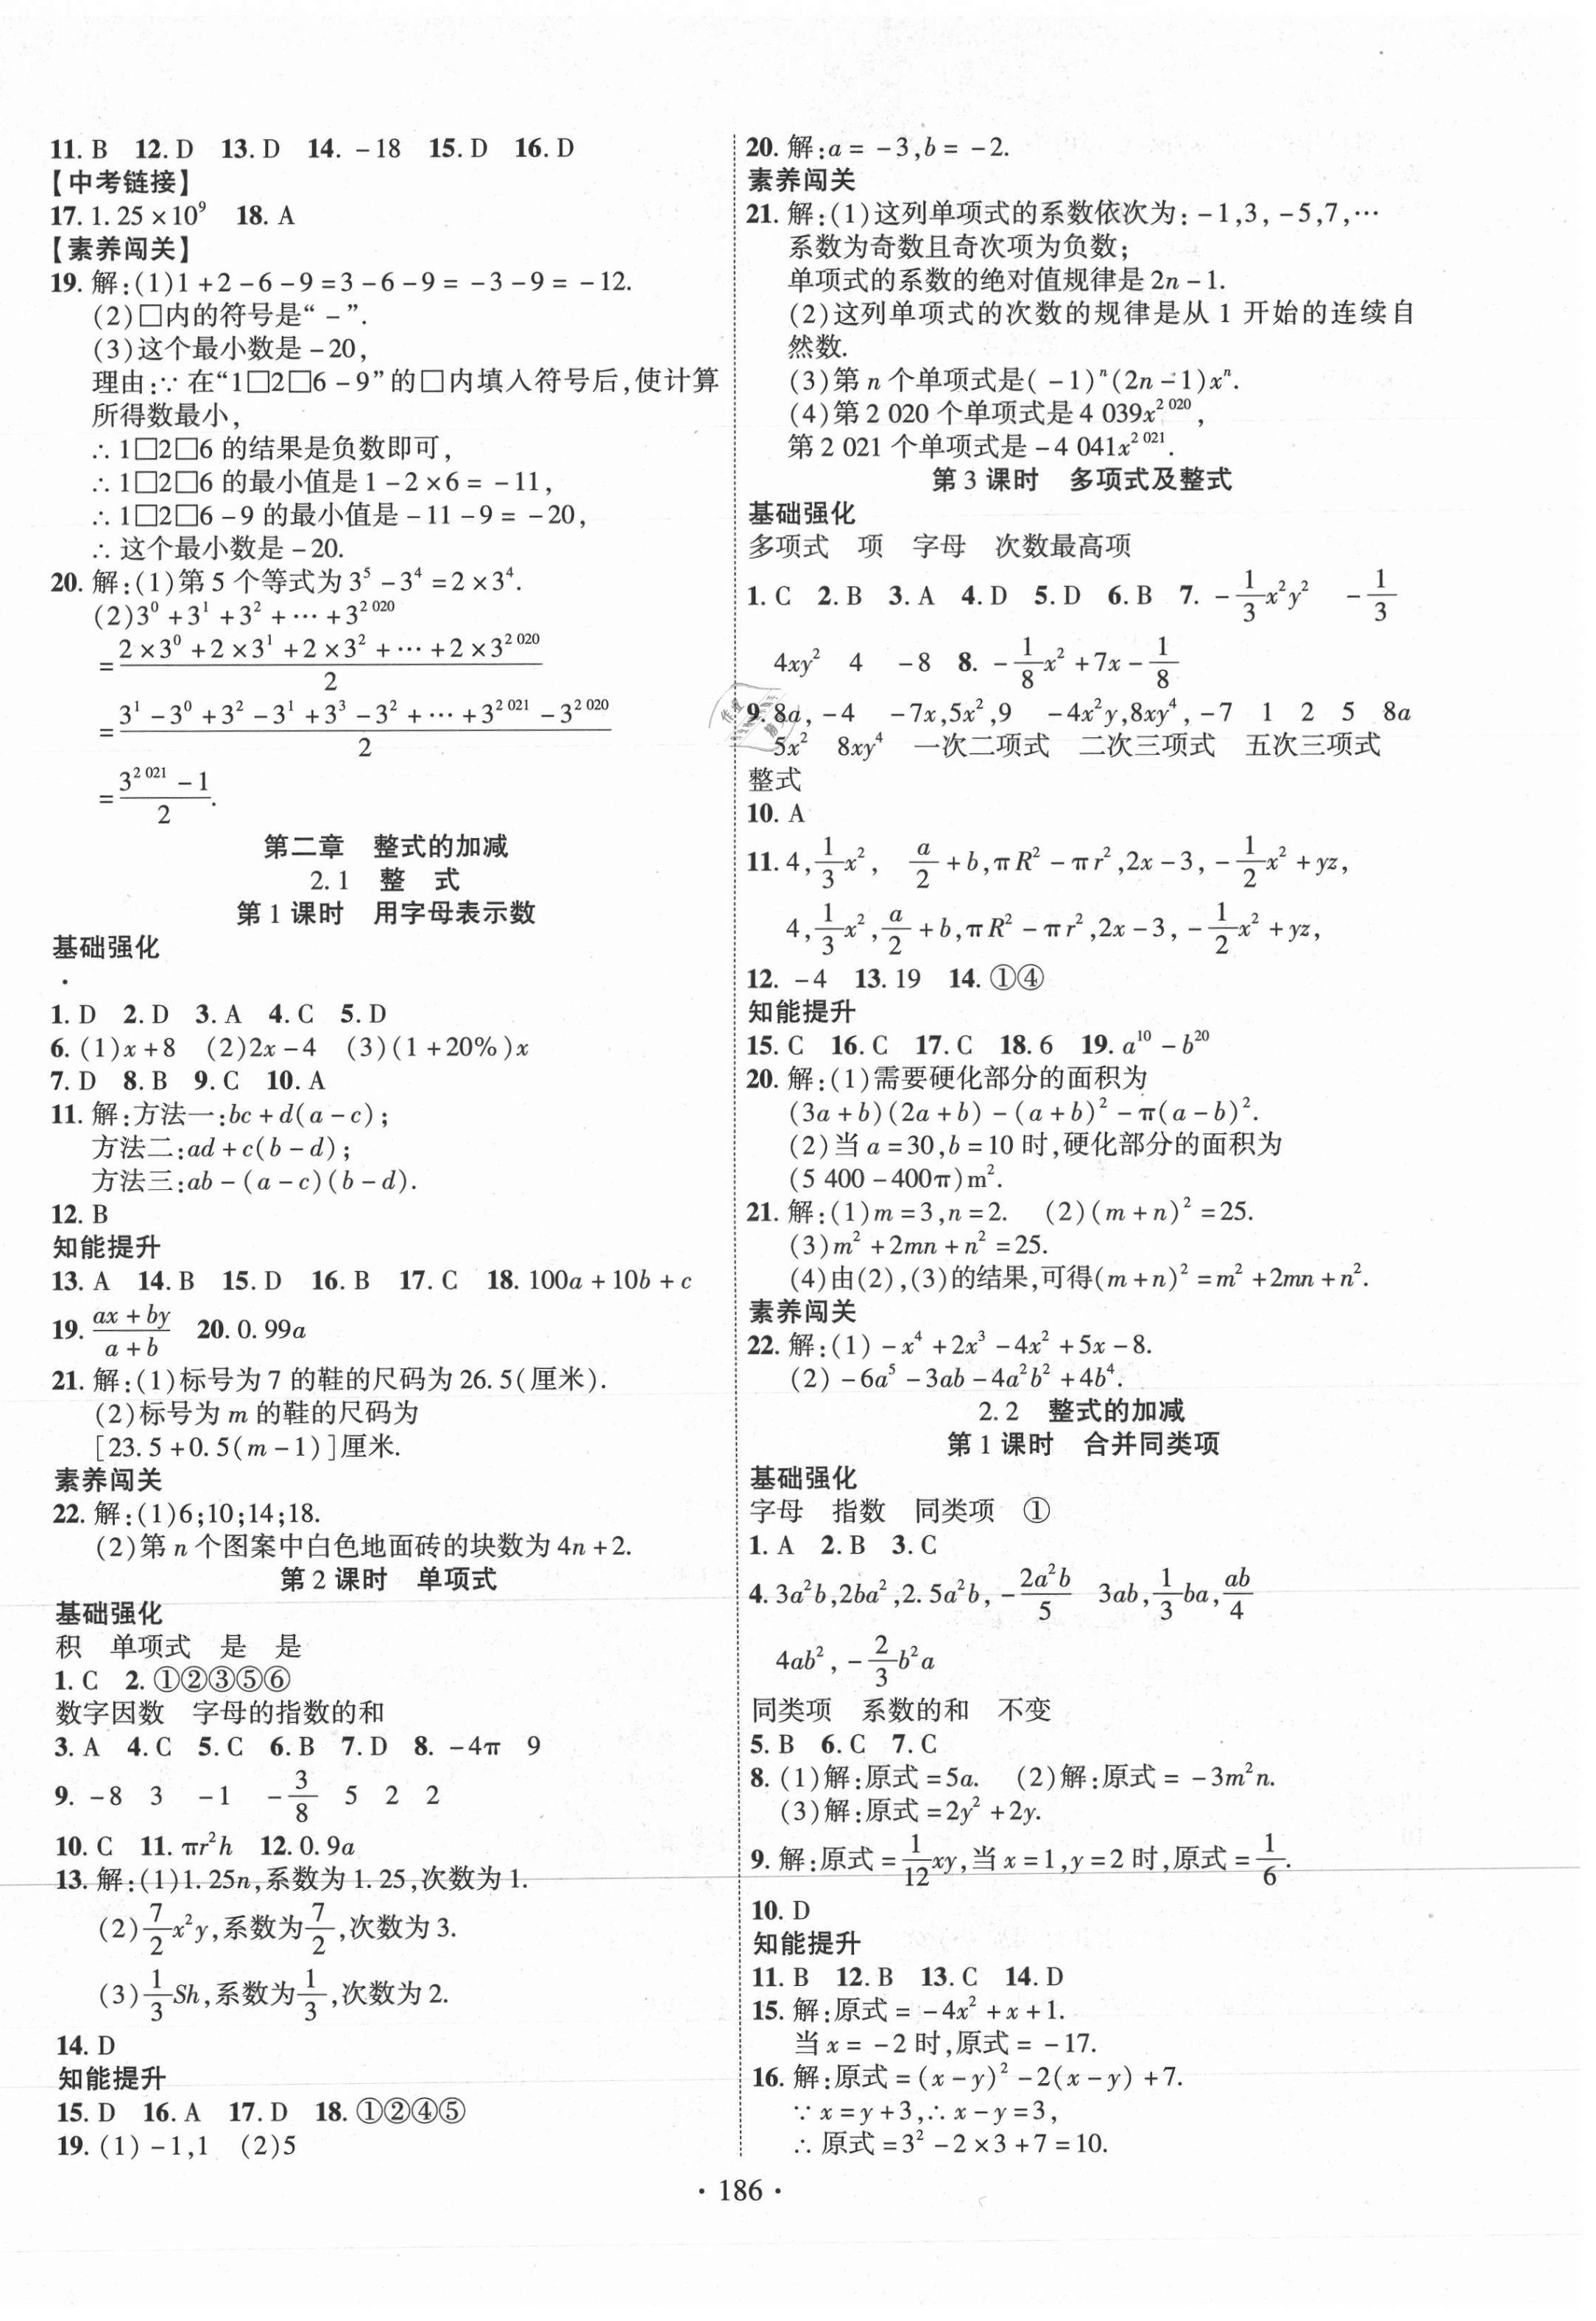 11. B 12. D 13. D 14. －18 15. D 16. D
【中考链接】
17. 1.25×10⁹ 18. A
【素养闯关】
19. 解:(1)1+2－6－9=3－6－9=－3－9=－12.
(2)□内的符号是“－”.
(3)这个最小数是－20,
理由:∵在“1□2□6－9”的□内填入符号后,使计算
所得数最小,
∴1□2□6的结果是负数即可,
∴1□2□6的最小值是1－2×6=－11,
∴1□2□6－9的最小值是－11－9=－20,
∴这个最小数是－20.
20. 解:(1)第5个等式为3⁵－3⁴=2×3⁴.
(2)3⁰+3¹+3²+…+3²⁰²⁰
=(2×3⁰+2×3¹+2×3²+…+2×3²⁰²⁰)/2
=(3¹－3⁰+3²－3¹+3³－3²+…+3²⁰²¹－3²⁰²⁰)/2
=(3²⁰²¹－1)/2.
第二章 整式的加减
2.1 整 式
第1课时 用字母表示数
基础强化
1. D 2. D 3. A 4. C 5. D
6. (1)x+8 (2)2x－4 (3)(1+20%)x
7. D 8. B 9. C 10. A
11. 解:方法一:bc+d(a－c);
方法二:ad+c(b－d);
方法三:ab－(a－c)(b－d).
12. B
知能提升
13. A 14. B 15. D 16. B 17. C 18. 100a+10b+c
19. (ax+by)/(a+b) 20. 0.99a
21. 解:(1)标号为7的鞋的尺码为26.5(厘米).
(2)标号为m的鞋的尺码为
[23.5+0.5(m－1)]厘米.
素养闯关
22. 解:(1)6;10;14;18.
(2)第n个图案中白色地面砖的块数为4n+2.
第2课时 单项式
基础强化
积 单项式 是 是
1. C 2. ①②③⑤⑥
数字因数 字母的指数的和
3. A 4. C 5. C 6. B 7. D 8. －4π 9
9. －8 3 －1 －3/8 5 2 2
10. C 11. πr²h 12. 0.9a
13. 解:(1)1.25n,系数为1.25,次数为1.
(2)7/2x²y,系数为7/2,次数为3.
(3)1/3Sh,系数为1/3,次数为2.
14. D
知能提升
15. D 16. A 17. D 18. ①②④⑤
19. (1)－1,1 (2)5
20. 解:a=－3,b=－2.
素养闯关
21. 解:(1)这列单项式的系数依次为:－1,3,－5,7,…
系数为奇数且奇次项为负数;
单项式的系数的绝对值规律是2n－1.
(2)这列单项式的次数的规律是从1开始的连续自
然数.
(3)第n个单项式是(－1)ⁿ(2n－1)xⁿ.
(4)第2 020个单项式是4 039x²⁰²⁰,
第2 021个单项式是－4 041x²⁰²¹.
第3课时 多项式及整式
基础强化
多项式 项 字母 次数最高项
1. C 2. B 3. A 4. D 5. D 6. B 7. －1/3x²y² －1/3
4xy² 4 －8 8. －1/8x²+7x－1/8
9. 8a,－4 －7x,5x²,9 －4x²y,8xy⁴,－7 1 2 5 8a
5x² 8xy⁴ 一次二项式 二次三项式 五次三项式
整式
10. A
11. 4,1/3x², a/2+b,πR²－πr²,2x－3,－1/2x²+yz,
4,1/3x²,a/2+b,πR²－πr²,2x－3,－1/2x²+yz,
12. －4 13. 19 14. ①④
知能提升
15. C 16. C 17. C 18. 6 19. a¹⁰－b²⁰
20. 解:(1)需要硬化部分的面积为
(3a+b)(2a+b)－(a+b)²－π(a－b)².
(2)当a=30,b=10时,硬化部分的面积为
(5 400－400π)m².
21. 解:(1)m=3,n=2. (2)(m+n)²=25.
(3)m²+2mn+n²=25.
(4)由(2),(3)的结果,可得(m+n)²=m²+2mn+n².
素养闯关
22. 解:(1)－x⁴+2x³－4x²+5x－8.
(2)－6a⁵－3ab－4a²b²+4b⁴.
2.2 整式的加减
第1课时 合并同类项
基础强化
字母 指数 同类项 ①
1. A 2. B 3. C
4. 3a²b,2ba²,2.5a²b,－2a²b/5 3ab,1/3ba,ab/4
4ab²,－2/3b²a
同类项 系数的和 不变
5. B 6. C 7. C
8. (1)解:原式=5a. (2)解:原式=－3m²n.
(3)解:原式=2y²+2y.
9. 解:原式=1/12xy,当x=1,y=2时,原式=1/6.
10. D
知能提升
11. B 12. B 13. C 14. D
15. 解:原式=－4x²+x+1.
当x=－2时,原式=－17.
16. 解:原式=(x－y)²－2(x－y)+7.
∵x=y+3,∴x－y=3,
∴原式=3²－2×3+7=10.
· 186 ·